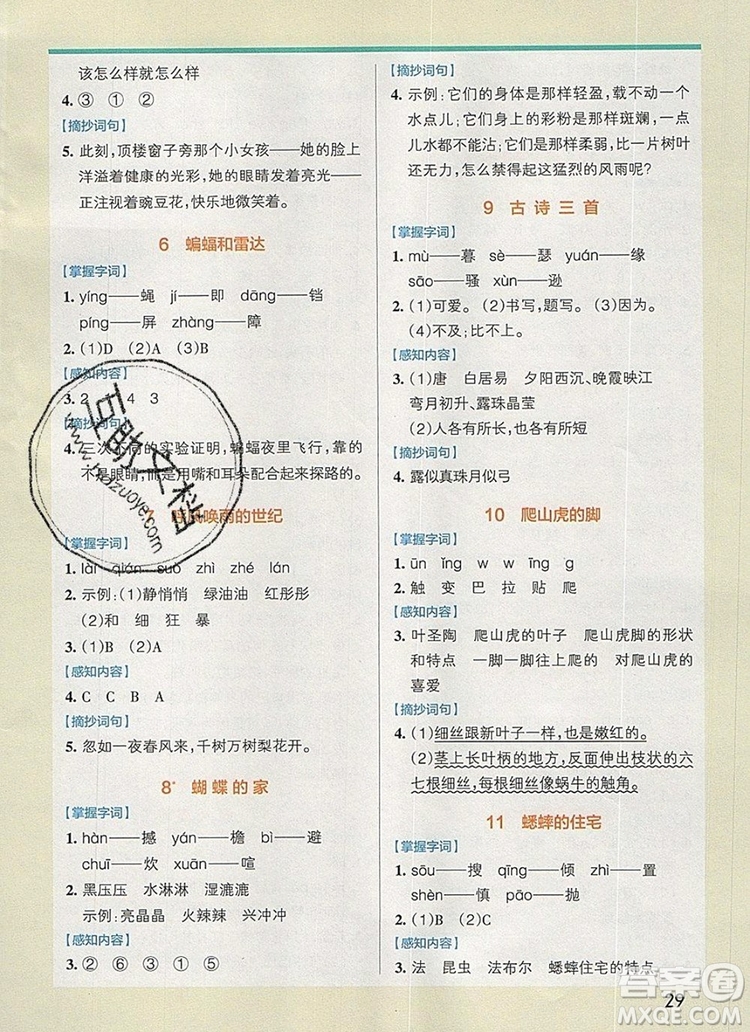 该怎么样就怎么样
4. ③ ① ②
【摘抄词句】
5. 此刻，顶楼窗子旁那个小女孩——她的脸上
洋溢着健康的光彩，她的眼睛发着亮光——
正注视着豌豆花，快乐地微笑着。
6 蝙蝠和雷达
【掌握字词】
1. yíng——蝇 jí——即 dāng——铛
píng——屏 zhàng——障
2. (1)D (2)A (3)B
【感知内容】
3. 2 4 3
【摘抄词句】
4. 三次不同的实验证明，蝙蝠夜里飞行，靠的
不是眼睛，而是用嘴和耳朵配合起来探路的。
呼风唤雨的世纪
【掌握字词】
1. lài qián suǒ zhì zhé lán
2. 示例：(1)静悄悄 绿油油 红彤彤
(2)和 细 狂 暴
3. (1)B (2)A
【感知内容】
4. C C B A
【摘抄词句】
5. 忽如一夜春风来，千树万树梨花开。
8* 蝴蝶的家
【掌握字词】
1. hàn——撼 yán——檐 bì——避
chuī——炊 xuān——喧
2. 黑压压 水淋淋 湿漉漉
示例：亮晶晶 火辣辣 兴冲冲
【感知内容】
3. ② ⑥ ③ ① ⑤
【摘抄词句】
4. 示例：它们的身体是那样轻盈，载不动一个
水点儿；它们身上的彩粉是那样斑斓，一点
儿水都不能沾；它们是那样柔弱，比一片树叶
还无力，怎么禁得起这猛烈的风雨呢？
9 古诗三首
【掌握字词】
1. mù——暮 sè——瑟 yuán——缘
sāo——骚 xùn——逊
2. (1)可爱。 (2)书写，题写。 (3)因为。
(4)不及；比不上。
【感知内容】
3. (1)唐 白居易 夕阳西沉、晚霞斜映
弯月初升、露珠晶莹
(2)人各有所长，也各有所短
【摘抄词句】
4. 露似真珠月似弓
10 爬山虎的脚
【掌握字词】
1. ūn íng w w īng g
2. 触 变 巴 拉 贴 爬
【感知内容】
3. 叶圣陶 爬山虎的叶子 爬山虎的形状
和特点 一脚一脚往上爬的 对爬山虎的
喜爱
【摘抄词句】
4. (1)细丝跟新叶子一样，也是嫩红的。
(2)茎上长叶柄的地方，反面伸出枝状的六
七根细丝，每根细丝像蜗牛的触角。
11 蟋蟀的住宅
【掌握字词】
1. sōu——搜 qīng——倾 zhì——置
shèn——慎 pāo——抛
2. (1)B (2)C
【感知内容】
3. 法 昆虫 法布尔 蟋蟀住宅的特点
29
互助文档
www.hdzuoye.com
答案圈
MXQE.COM